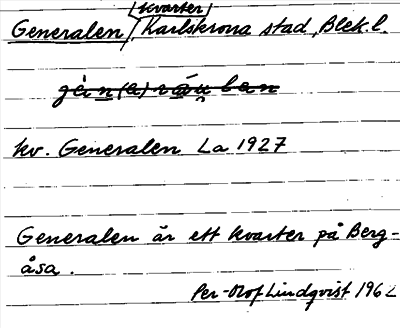 (kvarter)
Generalen, Karlskrona stad, Blek. l.
kv. Generalen La 1927
Generalen är ett kvarter på Berg-
åsa.
Per-Olof Lindqvist 1962